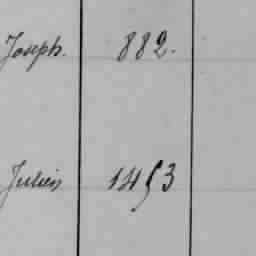 Joseph. 882.
Julien 1453